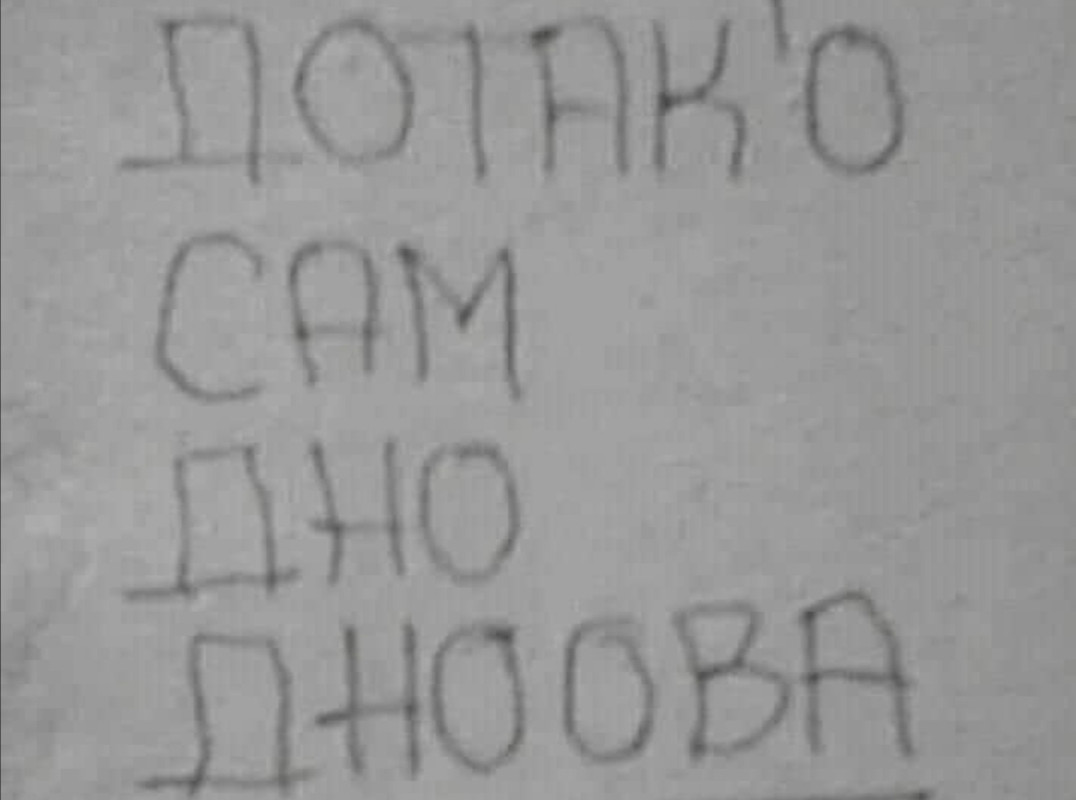 ДОТАК'О
САМ
ДНО
ДНООВА